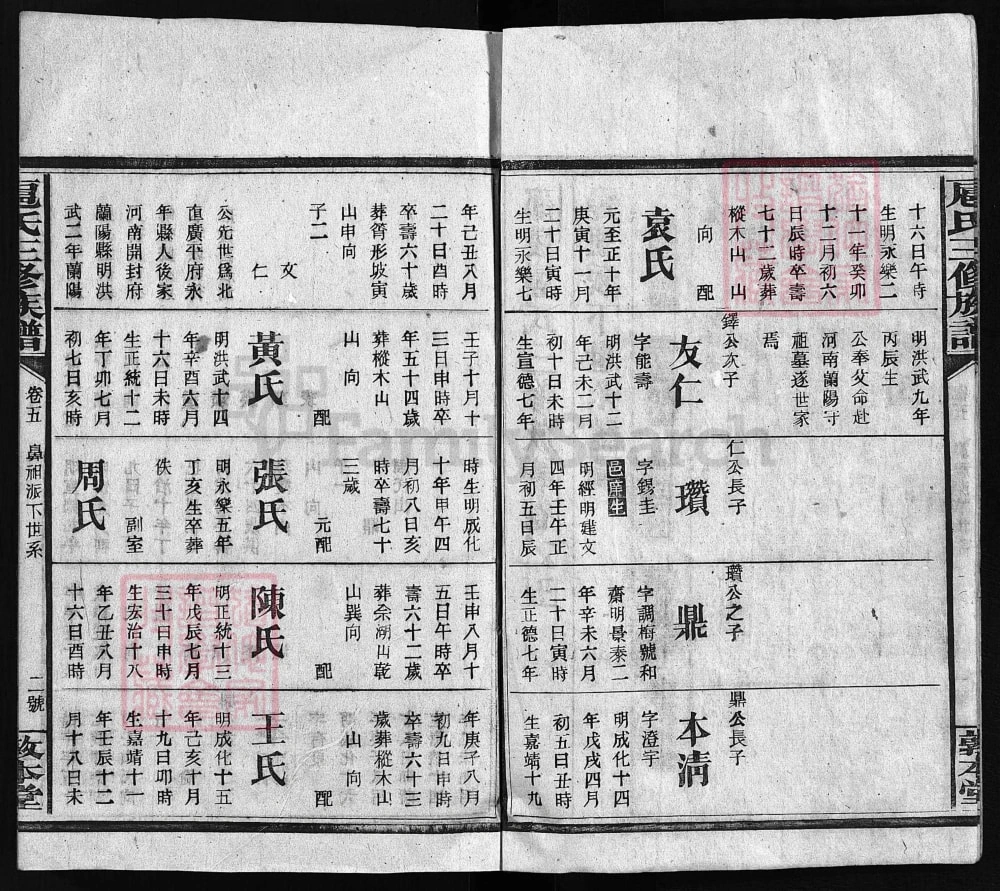 扈氏三修族譜
敦本堂
十六日午時
生明永樂二
十一年癸卯
十二月初六
日辰時卒壽
七十二歲葬
樅木山 山
向 配
袁氏
元至正十年
庚寅十一月
二十日寅時
生明永樂七
年己丑八月
二十日酉時
卒壽六十歲
葬筲形坡寅
山申向
子二
文
仁
公先世爲北
直廣平府永
年縣人後家
河南開封府
蘭陽縣明洪
武二年蘭陽
明洪武九年
丙辰生
公奉父命赴
河南蘭陽守
祖墓遂世家
焉
鐸公次子
友仁
字能壽
明洪武十二
年己未二月
初十日未時
生宣德七年
壬子十月十
三日申時卒
年五十四歲
葬樅木山
山 向
配
黃氏
明洪武十四
年辛酉六月
十六日未時
生正統十二
年丁卯七月
初七日亥時
仁公長子
瓚
字錫圭
邑廩生
明經明建文
四年壬午正
月初五日辰
時生明成化
十年甲午四
月初八日亥
時卒壽七十
三歲
元配
張氏
明永樂五年
丁亥生卒葬
佚
副室
周氏
瓚公之子
鼎
字調梅號和
齋明景泰二
年辛未六月
二十日寅時
生正德七年
壬申八月十
五日午時卒
壽六十二歲
葬余湖山乾
山巽向
配
陳氏
明正統十三
年戊辰七月
三十日申時
生宏治十八
年乙丑八月
十六日酉時
鼎公長子
本淸
字澄宇
明成化十四
年戊戌四月
初五日丑時
生嘉靖十九
年庚子八月
初九日申時
卒壽六十三
歲葬樅木山
山 向
配
王氏
明成化十五
年己亥十月
十九日卯時
生嘉靖十一
年壬辰十二
月十八日未
扈氏三修族譜
卷五
鼻祖派下世系
二號
敦本堂
FamilySearch